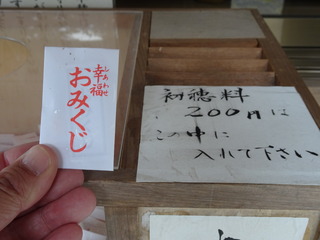 幸福
しあわせ
おみくじ
初穂料
200円は
この中に
入れて下さい